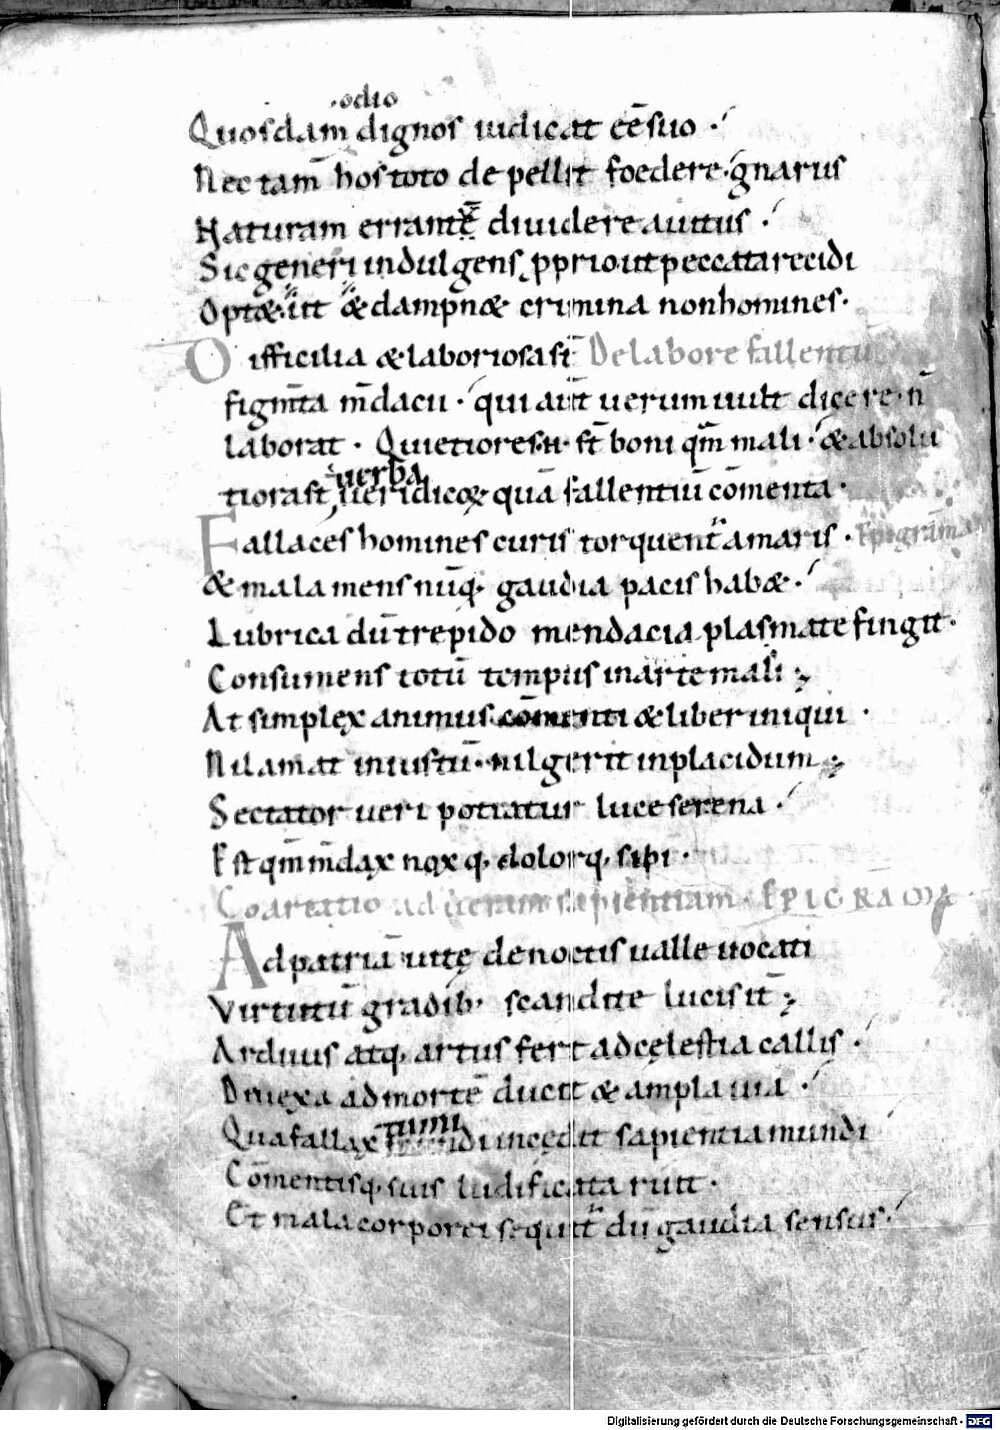 ·odio
Quosdam dignos iudicat eē suo ·
Nec tam̄ hos toto depellit foedere· gnarus
Naturam errantē diuidere auitus ·
Sic generi indulgens ꝓprio ut peccata recidi
Optæ· ut & dampnæ crimina non homines·
Difficilia & laboriosa sr̄t De labore fallentiū
figm̄ta m̄dacii · qui aut̄ uerum uult dicere· n̄
laborat · Quietiores·n· st̄ boni qm̄ mali · & absolu
uerba
tiora st̄ ueridicoꝝ quā fallentiū cōmenta·
Fallaces homines curis torquent̃ amaris · Epigrāma
& mala mens nūq· gaudia pacis habæ·
Lubrica dū trepido mendacia plasmate fingit·
Consumens totū tempus in arte mali ;
At simplex animus cōmenti & liber iniqui ·
Nil amat iniustū· nil gerit inplacidum ;
Sectator ueri potiatur luce serena ·
Est qm̄ m̄dax noxq· dolorq· sibi ·
Coartatio ad ueram sapientiam· EPIGRĀMA
Ad patriā uitę de noctis ualle uocati
Virtutū gradib· scandite lucis it̄ ;
Arduus atq· artus fert ad cęlestia callis ·
Deuexa ad mortē ducit & ampla uia ·
tumi
Qua fallax di incedit sapientia mundi
Cōmentisq· suis ludificata ruit ·
Et mala corporei sequit̃ dū gaudia sensus·